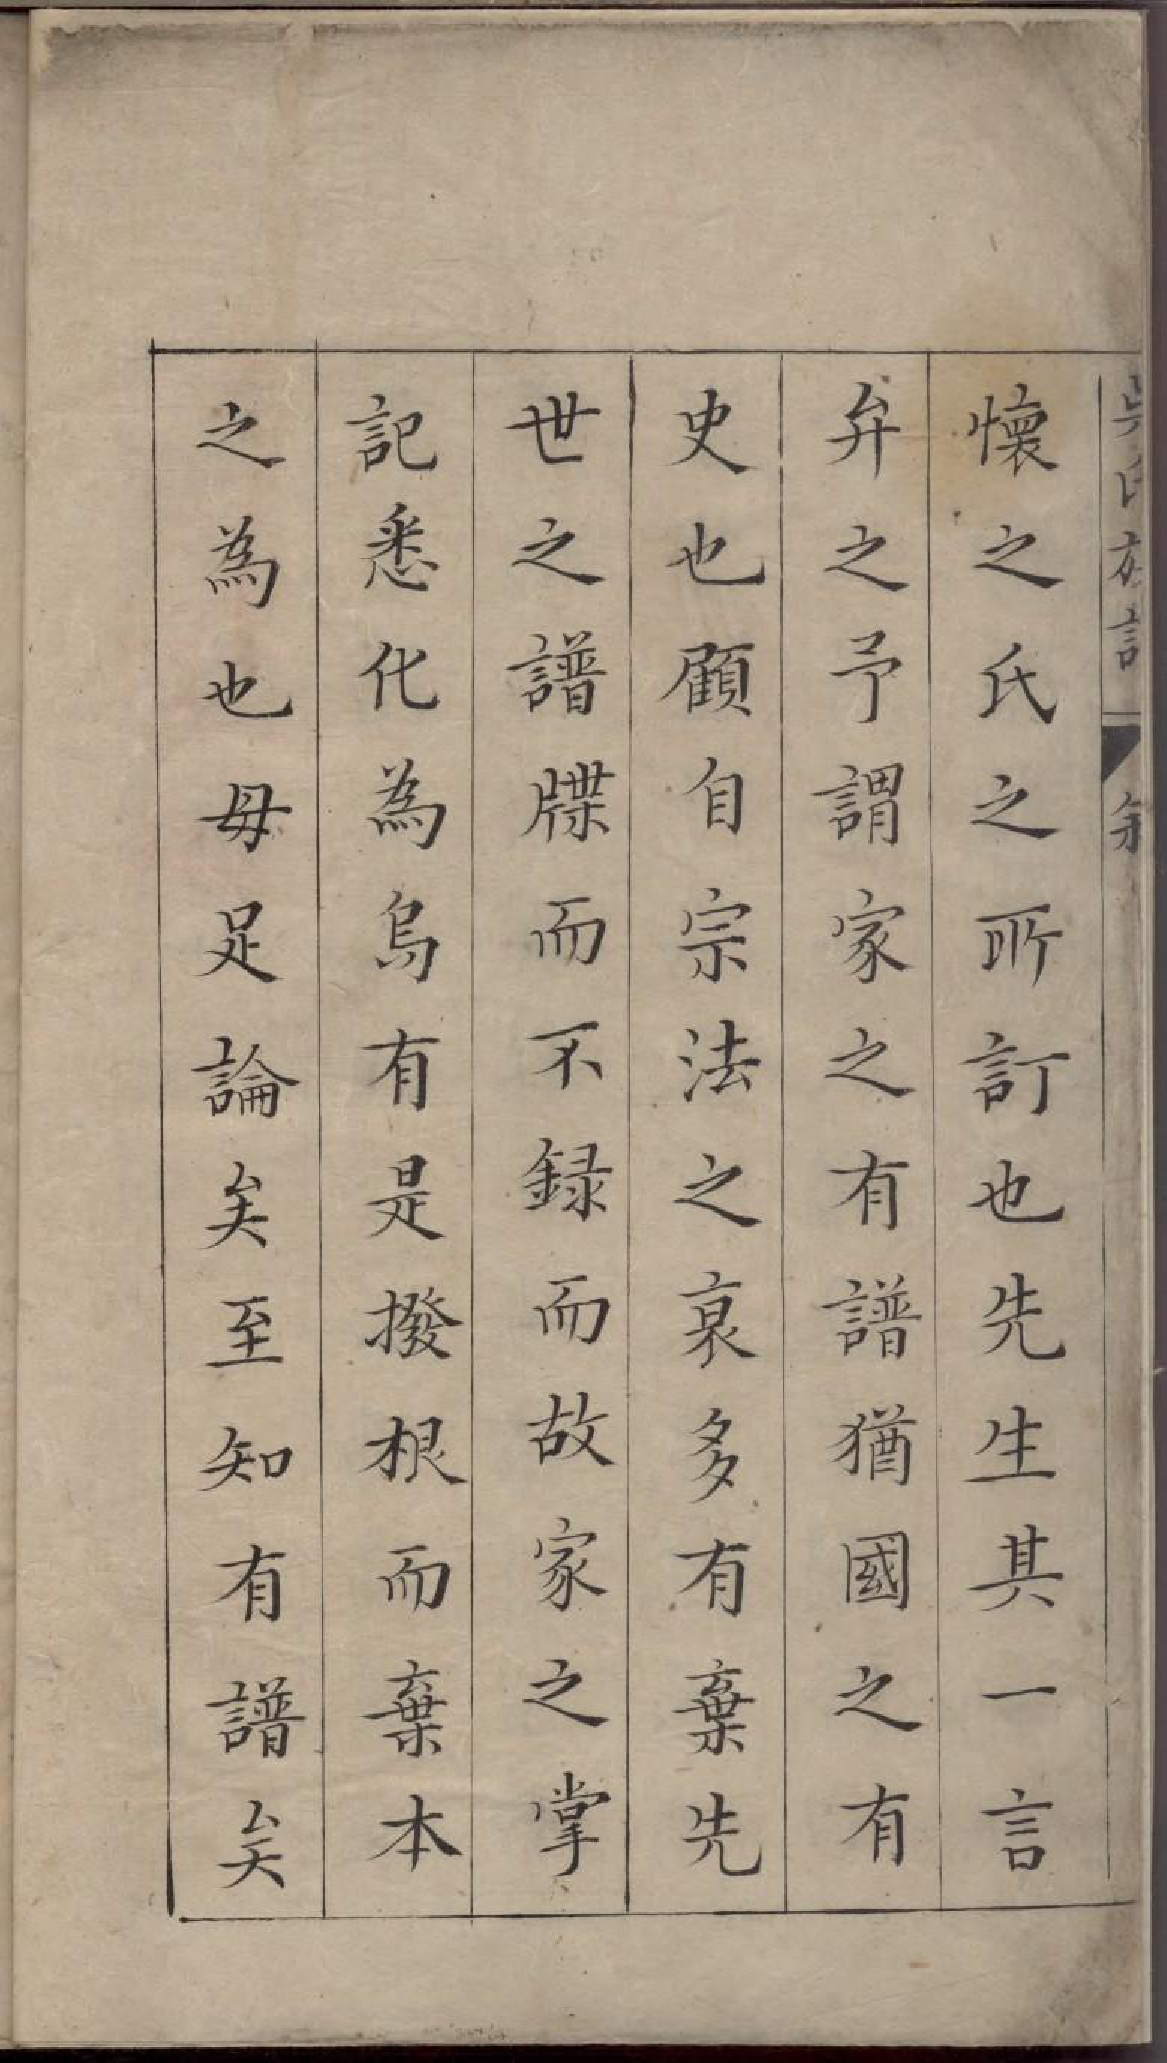 吳氏族譜 叙
懷之氏之所訂也先生其一言
弁之予謂家之有譜猶國之有
史也顧自宗法之衰多有棄先
世之譜牒而不録而故家之掌
記悉化為烏有是撥根而棄本
之為也毋足論矣至知有譜矣